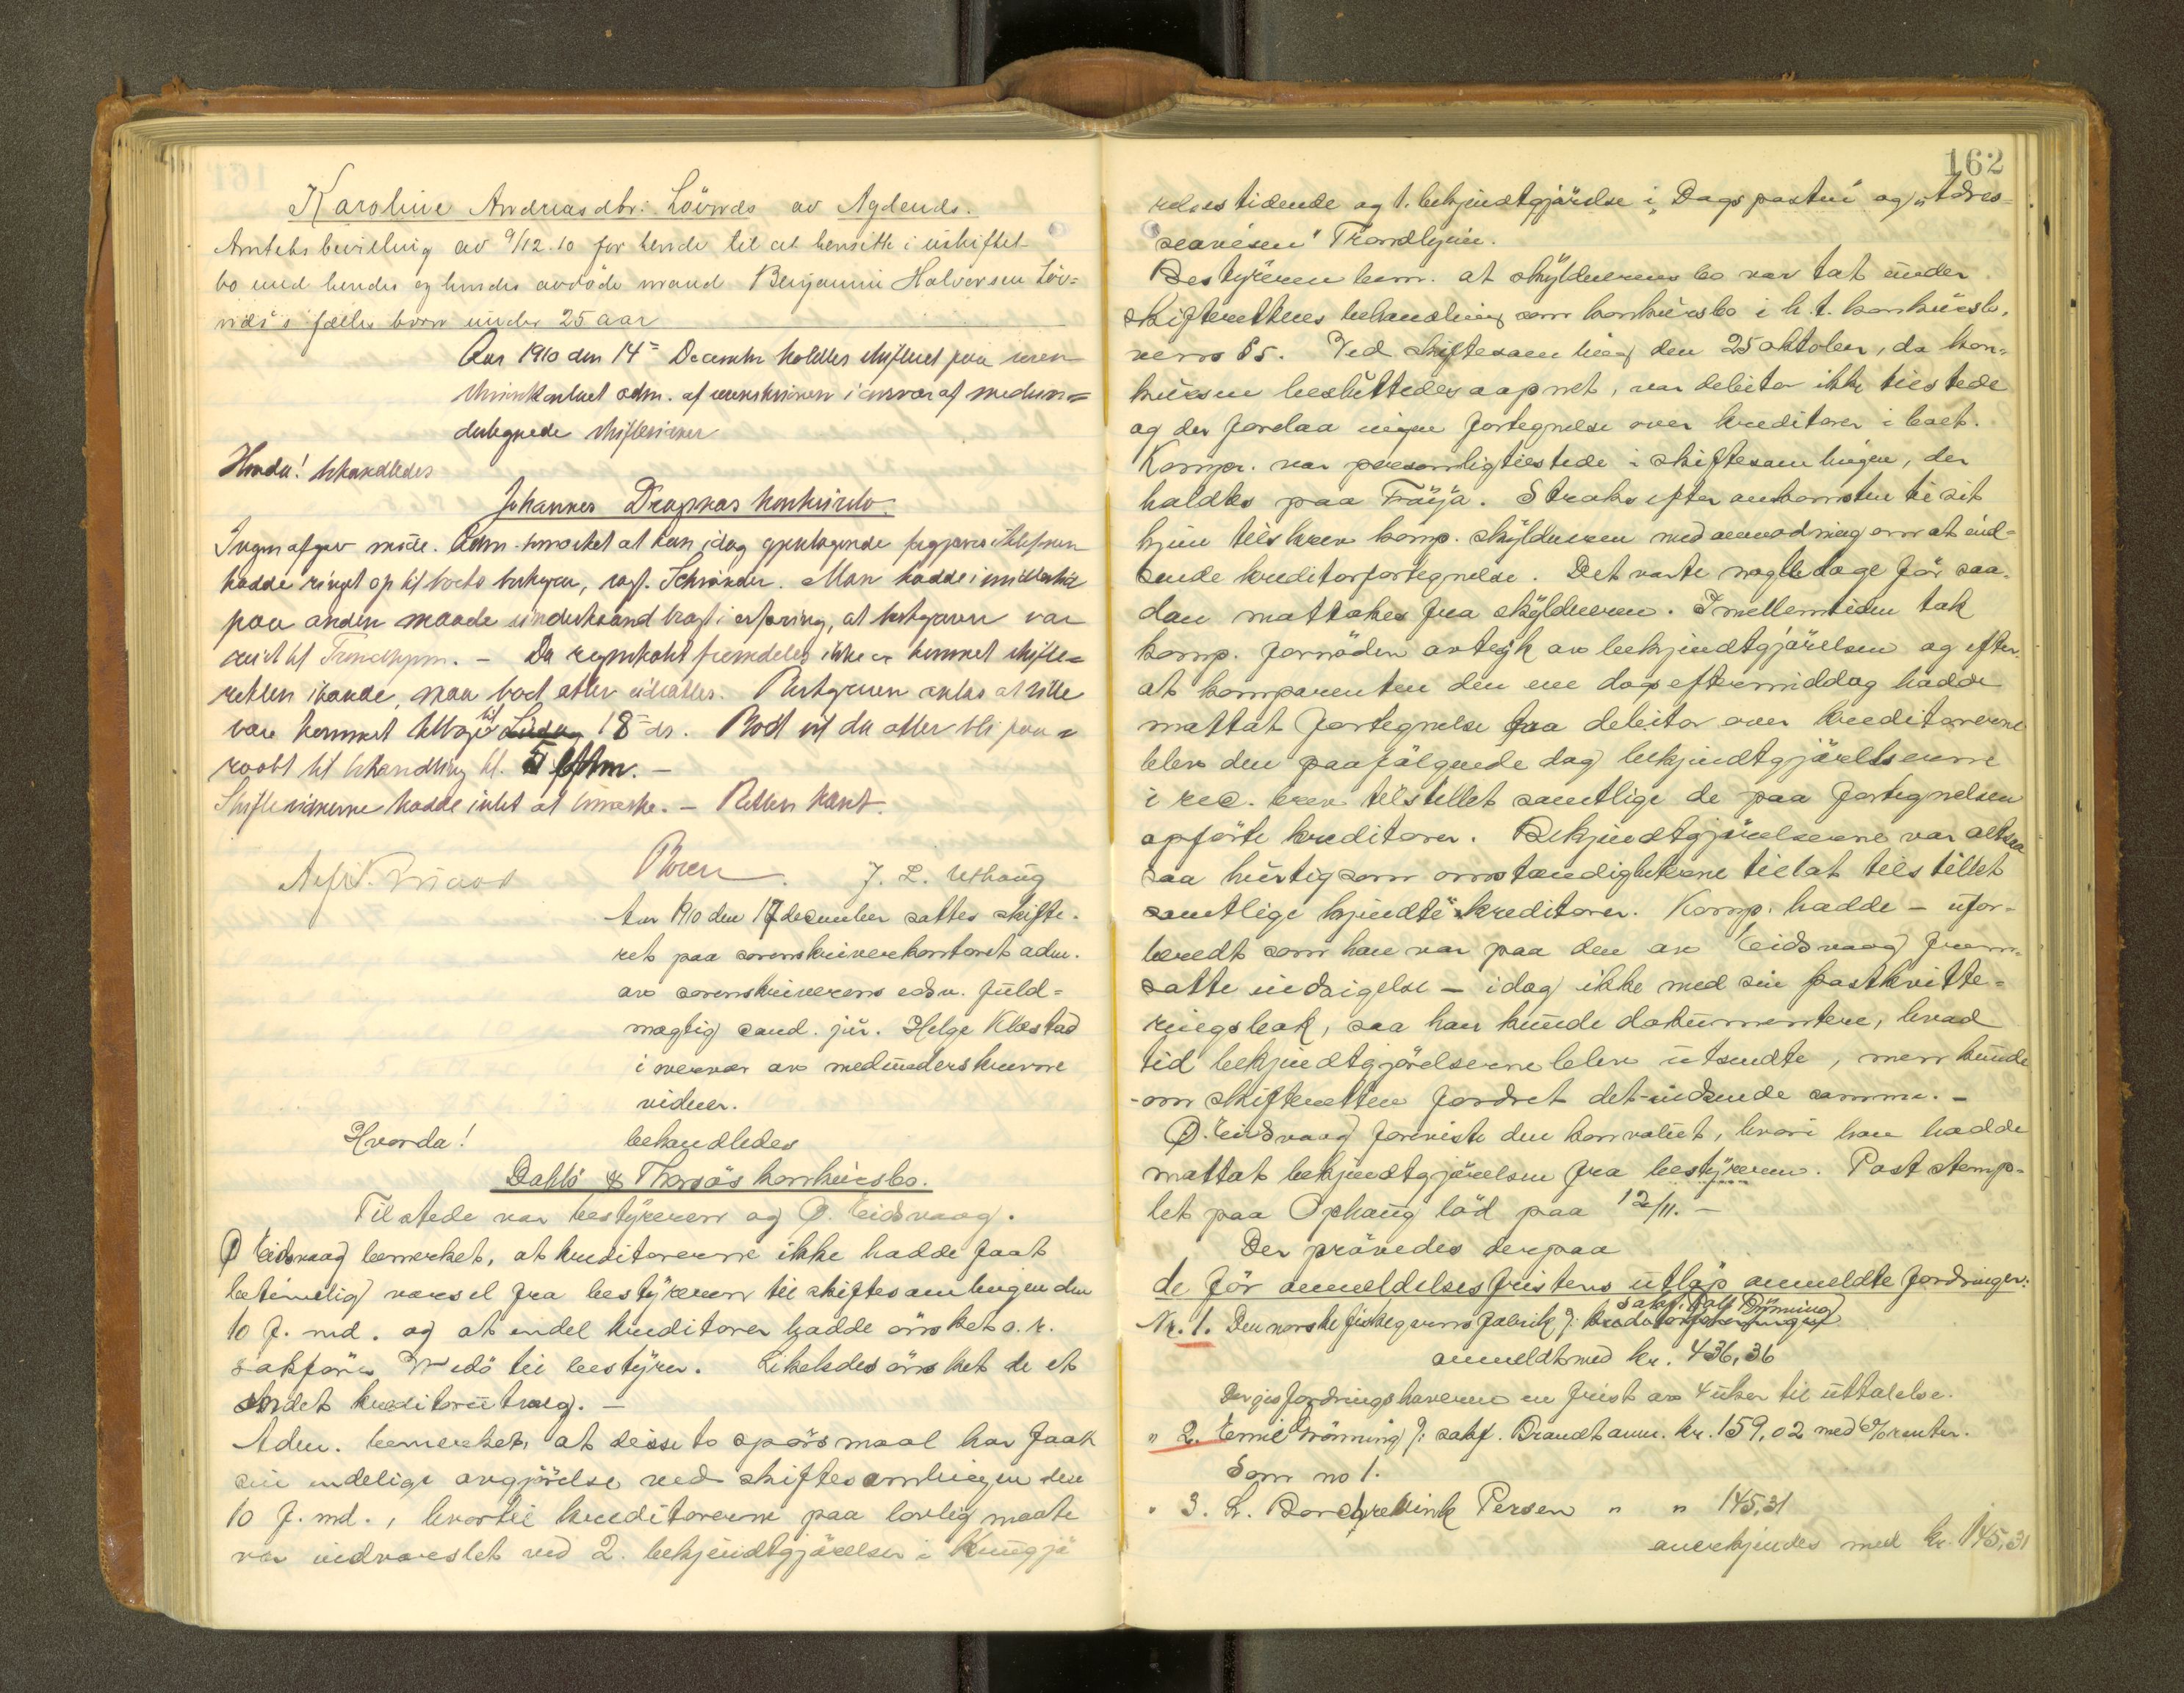 Karoline Andreasdtr. Lövnds av Agdends.
Amtets bevilling av 9/12.10 for hende til at hensitte i uskiftet
bo med hendes og hendes avdöde mand Benjamin Halvorsen Löv=
nds's fælles born under 25 aar
Aar 1910 den 14de December holdtes skifteret paa soren-
skriverkontoret adm. af sorenskriveren i overvær af medun=
dertegnede skiftevidner
Hvorda! behandledes
Johannes Drapnas konkursbo.
Ingen afgav møde. Adm. bemerket at han idag gjentagende forgjæves i telefonen
hadde ringt op til boets bestyrer, sagf. Schrøder. Man hadde imidlertid
paa anden maade underhaand bragt i erfaring, at bestyreren var
reist til Trondhjem. – Da regnskabet fremdeles ikke er kommet skifte=
retten ihænde, maa boet atter utsættes. Bestyreren antas at ville
være kommet tilbage til Lördag 18 ds. Boet vil da atter bli paa=
roobt til behandling kl. 5 eftm. –
Skiftevidnerne hadde intet at bemærke. – Retten hævet.
J. L. Uthaug
Aar 1910 den 17 december sattes skifte-
ret paa sorenskriverkontoret adm.
av sorenskriverens edsv. fuld=
mægtig cand. jur. Helge Klæstad
i overvær av medunderskrevne
vidner.
Hvorda! behandledes
Dahlö & Thorsös konkursbo.
Tilstede var bestyreren og O. Eidsvaag.
O Eidsvaag bemerket, at kreditorerne ikke hadde faat
betimelig varsel fra bestyreren til skiftesamlingen den
10 f. md. og at endel kreditorer hadde önsket o.r.
sakförer Wedö til bestyrer. Likeledes önsket de et
andet kreditorutvalg. –
Adm. bemerket, at disse to spörsmaal har faat
sin endelige avgjörelse ved skiftesamlingen den
10 f. md., hvortil kreditorerne paa lovlig maate
var indvarslet ved 2. bekjendtgjörelser i Kungjö
162
relsestidende og 1. bekjendtgjörelse i "Dagsposten" og "Adres=
seavisen" Trondhjem.
Bestyreren bem. at skyldnerens bo var tat under
skifterettens behandling som konkursbo i h.t. konkursl.
vens § 5. Ved skiftesamling den 25 oktober, da kon-
kursen besluttedes aapnet, var debitor ikke tilstede
og der forelaa ingen fortegnelse over kreditorer i boet.
Kompr. var personlig tilstede i skiftesamlingen, der
holdtes paa Fröya. Straks efter ankomsten til sit
hjem tilskrev komp. skyldneren med anmodning om at ind=
sende kreditorfortegnelse. Det varte nogle dage för saa-
dan mottokes fra skyldneren. Imellemtiden tok
komp. fornöden avtryk av bekjendtgjörelsen og efter
at komparenten den ene dags eftermiddag hadde
mottat fortegnelse fra debitor over kreditorerne
blev den paafölgende dag bekjendtgjörelserne
i rec. brev tilstillet samtlige de paa fortegnelsen
opförte kreditorer. Bekjendtgjörelserne var altsaa
saa hurtig som omstændighetene tillot tilstillet
samtlige kjendte kreditorer. Komp. hadde – ufor-
beredt som han var paa den av Eidsvaag frem-
satte indsigelse – idag ikke med sin postkvitte=
ringsbok, saa han kunde dokumentere, hvad
tid bekjendtgjörelserne blev utsendte, men kunde
– om skifteretten fordret det – indsende samme. –
O. Eidsvaag foreviste den konvolut, hvori han hadde
mottat bekjendtgjörelsen fra bestyreren. Poststemp-
let paa Ophaug löd paa 12/11. –
Der prövedes derpaa
de för anmeldelsesfristens utlöp anmeldte fordringer:
Nr. 1. Den norske fiskegarnsfabrik v: sakf. Rolf Brönning
anmeldt med kr. 436,36
Der gis fordringshaveren en frist av 4 uker til uttalelse.
" 2. Emil Brönning v: sakf. Brandt anm. kr. 159,02 med % renter.
Som no 1.
" 3. L. Borchgrevink Persen " " 145,31
anerkjendes med kr. 145,31